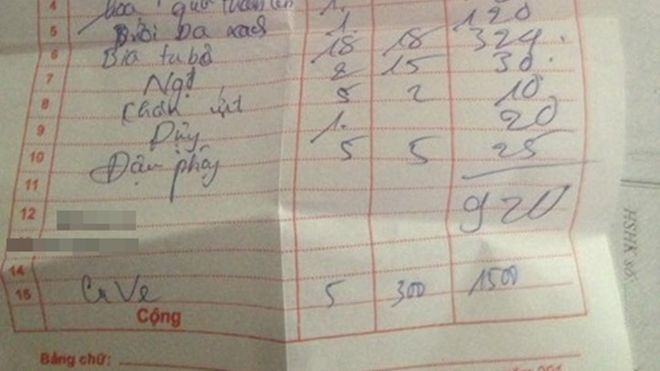 4 hoa quả 1. 120
5 Bưởi da xanh 1
6 Bia tubo 18 18 324.
7 Ngọt 2 15 30.
8 Khăn ướt 5 2 10
9 1. 20
10 Đậu phộng 5 5 25
11
12 920
14
15 Cave 5 300 1500
Cộng
Bằng chữ:
HSHK SỐ: